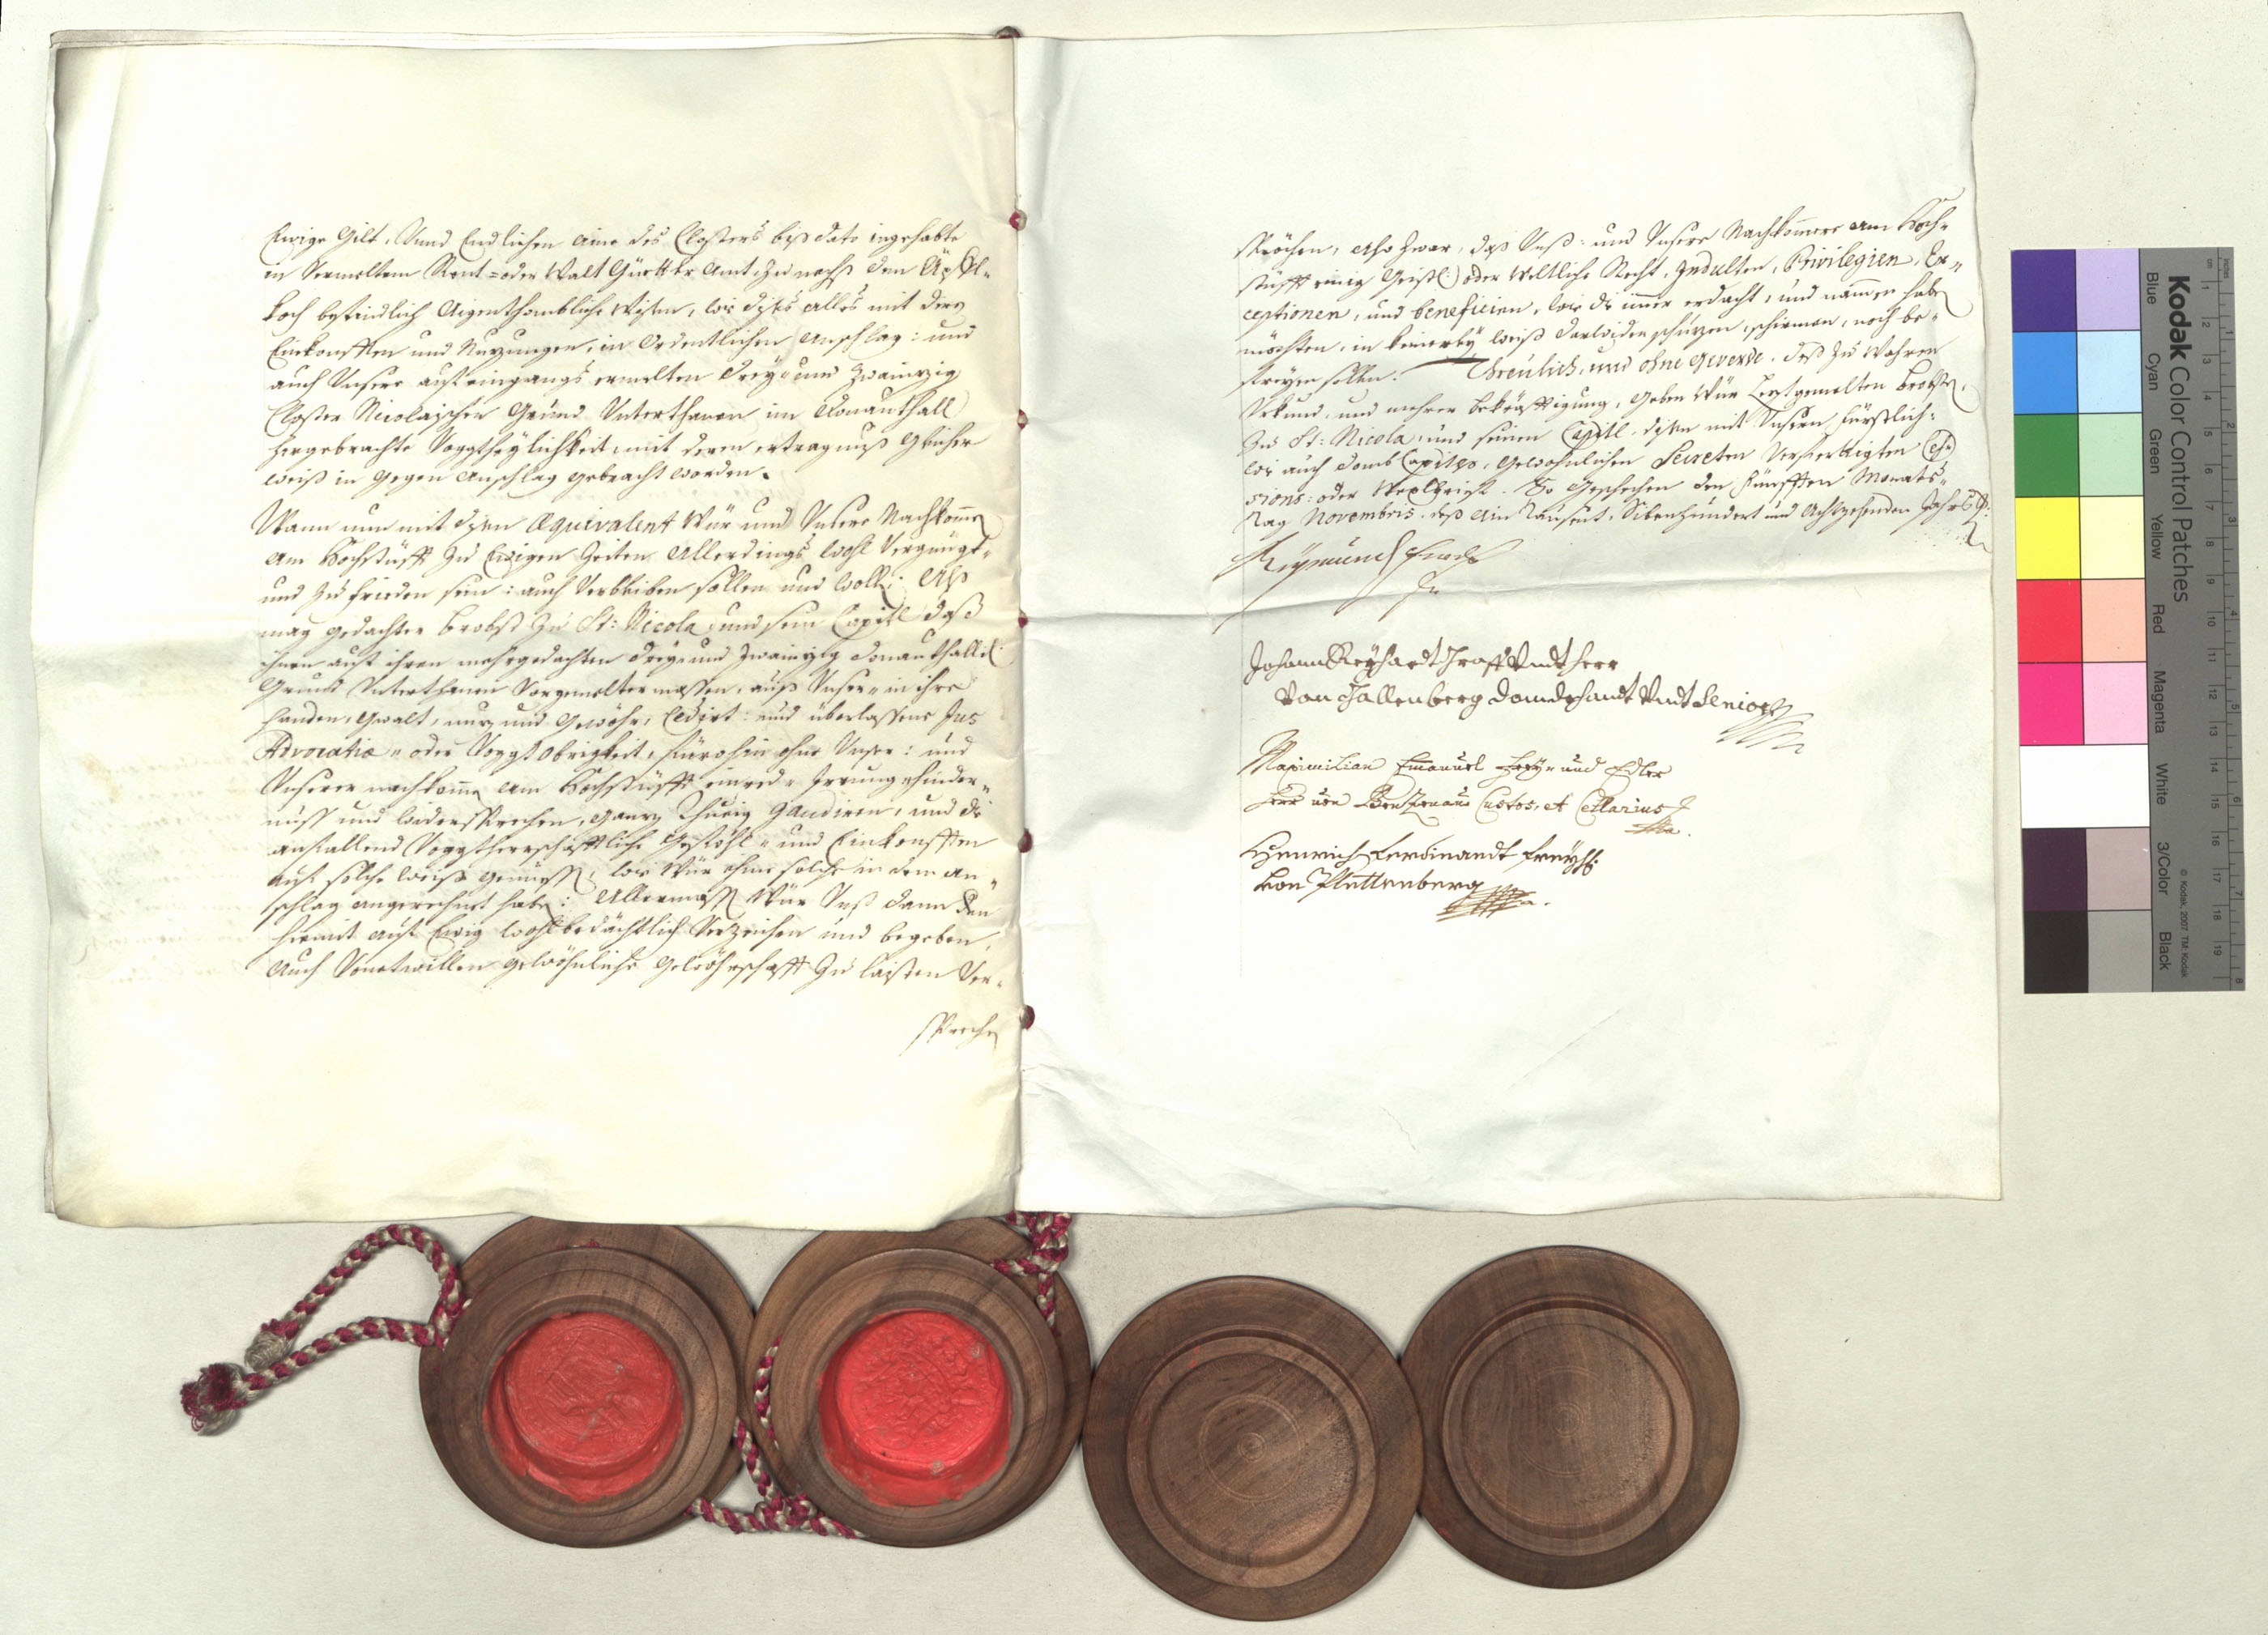 Ewige Gilt, Vnnd Endlichen aine des Closters biß dato ingehabte
in Vermeltem Rent- oder Walt Güettler Amt, zu nechst dem
hoch befindlich Aigenthombliche Wisen, wie dises alles mit dero
Einkonfften und Nuzungen, in Ordentlichen Anschlag: und
auch Unsere auf eingangs ermelten drey und zwainzig
Closter Nicolaischen Grund Unterthanen im Donauthall
hergebrachte Voggtheylichkeit, mit deren ertragnuß gleicher
weiß in gegen Anschlag gebracht worden.
Wann nun mit disem Æquivalent Wür und Unsere Nachkomen
am Hochstüfft zu Ewigen Zeiten allerdings wohl Vergnügt-
und zu friden sein: auch Verbleiben sollen und wollen: Also
mag gedachter Brobst zu St: Nicola, und sein Capitl daß
ihnen auf ihren mehrgedachten drey und zwainzig Donauthall:
Grund Unterthanen Vorgemeltermassen, auß Unser- in ihre
handen, Gewalt, nuz und Gewöhr, Cedirt: und überlassene Jus
Advocatiæ- oder Voggt Obrigkeit, fürohin ohne Unser: und
Unserer nachkomen am Hochstüfft einred- Irrung- hinder-
nuss und widersprechen, ganz Ruhig gaudiren, und die
anfallend Voggtherrschafftliche Gefröhl- und Einkonfften
auf solche weiß geniessen, wie Wür ihme solche in dem an-
schlag angerechnet haben: Allermassen Wür Unß dann deren
hiemit auf Ewig wohlbedächtlich Verzeihen und begeben,
Auch derentwillen gewöhnliche Gewöhrschafft zu laisten Ver-
sprechen
sprechen, Also zwar, daß Unß: und Unsere Nachkomen am Hoch-
stüfft einig Geistl: oder Weltliche Recht, Indulten, Privilegien, Ex-
ceptionen, und beneficien, wie die imer erdacht, und namen haben
möchten, in keinerley weiß darwider schüzen, schirmen, noch be-
freyen sollen. Threulich, und ohne geverde. Deß zu Wahren
Urkund, und mehrer bekräfftigung, Geben Wür Lestgemelten Brobsten
zu St: Nicola, und seinen Capitl, disen mit Unsern Fürstlich-
wie auch Domb Capitls, gewohnlichen Secreten Verfertigten Ces-
sions: oder Wexlbrief. So Geschechen den Fünfften Monats-
Tag Novembris, deß Ain Tausent, Sibenhundert und Achtzehenden Jahrs
Raymund
Johann Reyhardt Graff Vndt Herr
Von Gallenberg Domdechandt Vndt Senior
Maximilian Emanuel Frey- und Edler
Herr von Benzenau Custos, et Cellarius
Henrich Ferdinandt Freyh:
von Plettenberg
Kodak Color Control Patches
© Kodak, 2007 TM: Kodak
Blue
Cyan
Green
Yellow
Red
Magenta
White
3/Color
Black